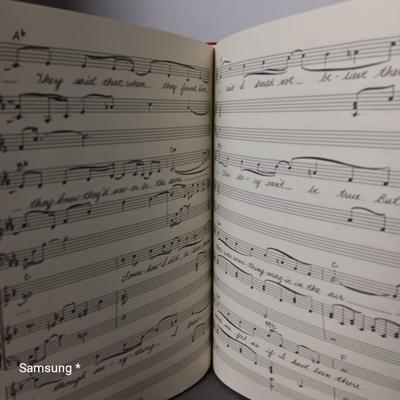 Ab
They said that when they found him
Cm
they knew they'd nev-er be the same
C
Some-how I did
through my
said I should not be-lieve the
This sto-ry can't be true. But
was some-thing mag-ic in the air
C
me feel as if I had been there.
Samsung *